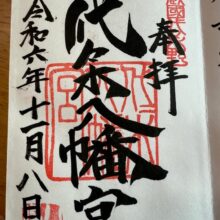 奉拝
代々木八幡宮
令和六年十一月八日